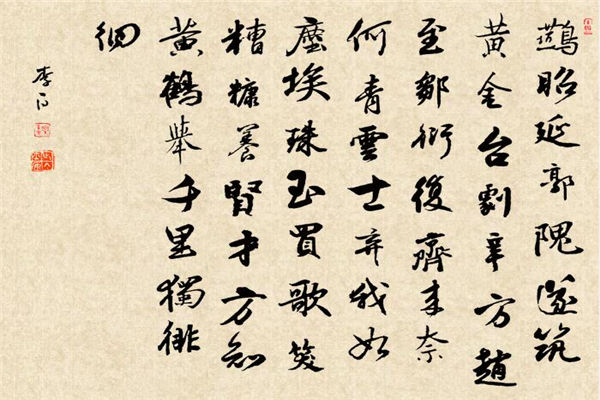 鷰昭延郭隗遂筑
黄金台劇辛方趙
至鄒衍復齊來奈
何青雲士弃我如
塵埃珠玉買歌笑
糟糠養賢才方知
黄鶴舉千里獨徘
徊
李白